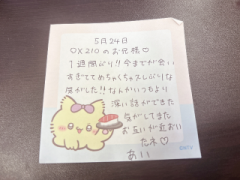 5月24日
♡X210のお兄様♡
1週間ぶり!!今までが会い
すぎててめちゃくちゃ久しぶりな
気がした!!なんかいつもより
深い話ができた
気がしてきた
お互いが
たネ♡
あい